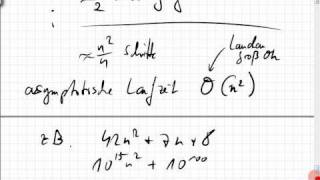 n/2
≈ n²/4 Schritte
Landau
groß Oh
asymptotische Laufzeit O(n²)
z.B. 42n² + 7n + 8
10¹⁵n² + 10¹⁰⁰